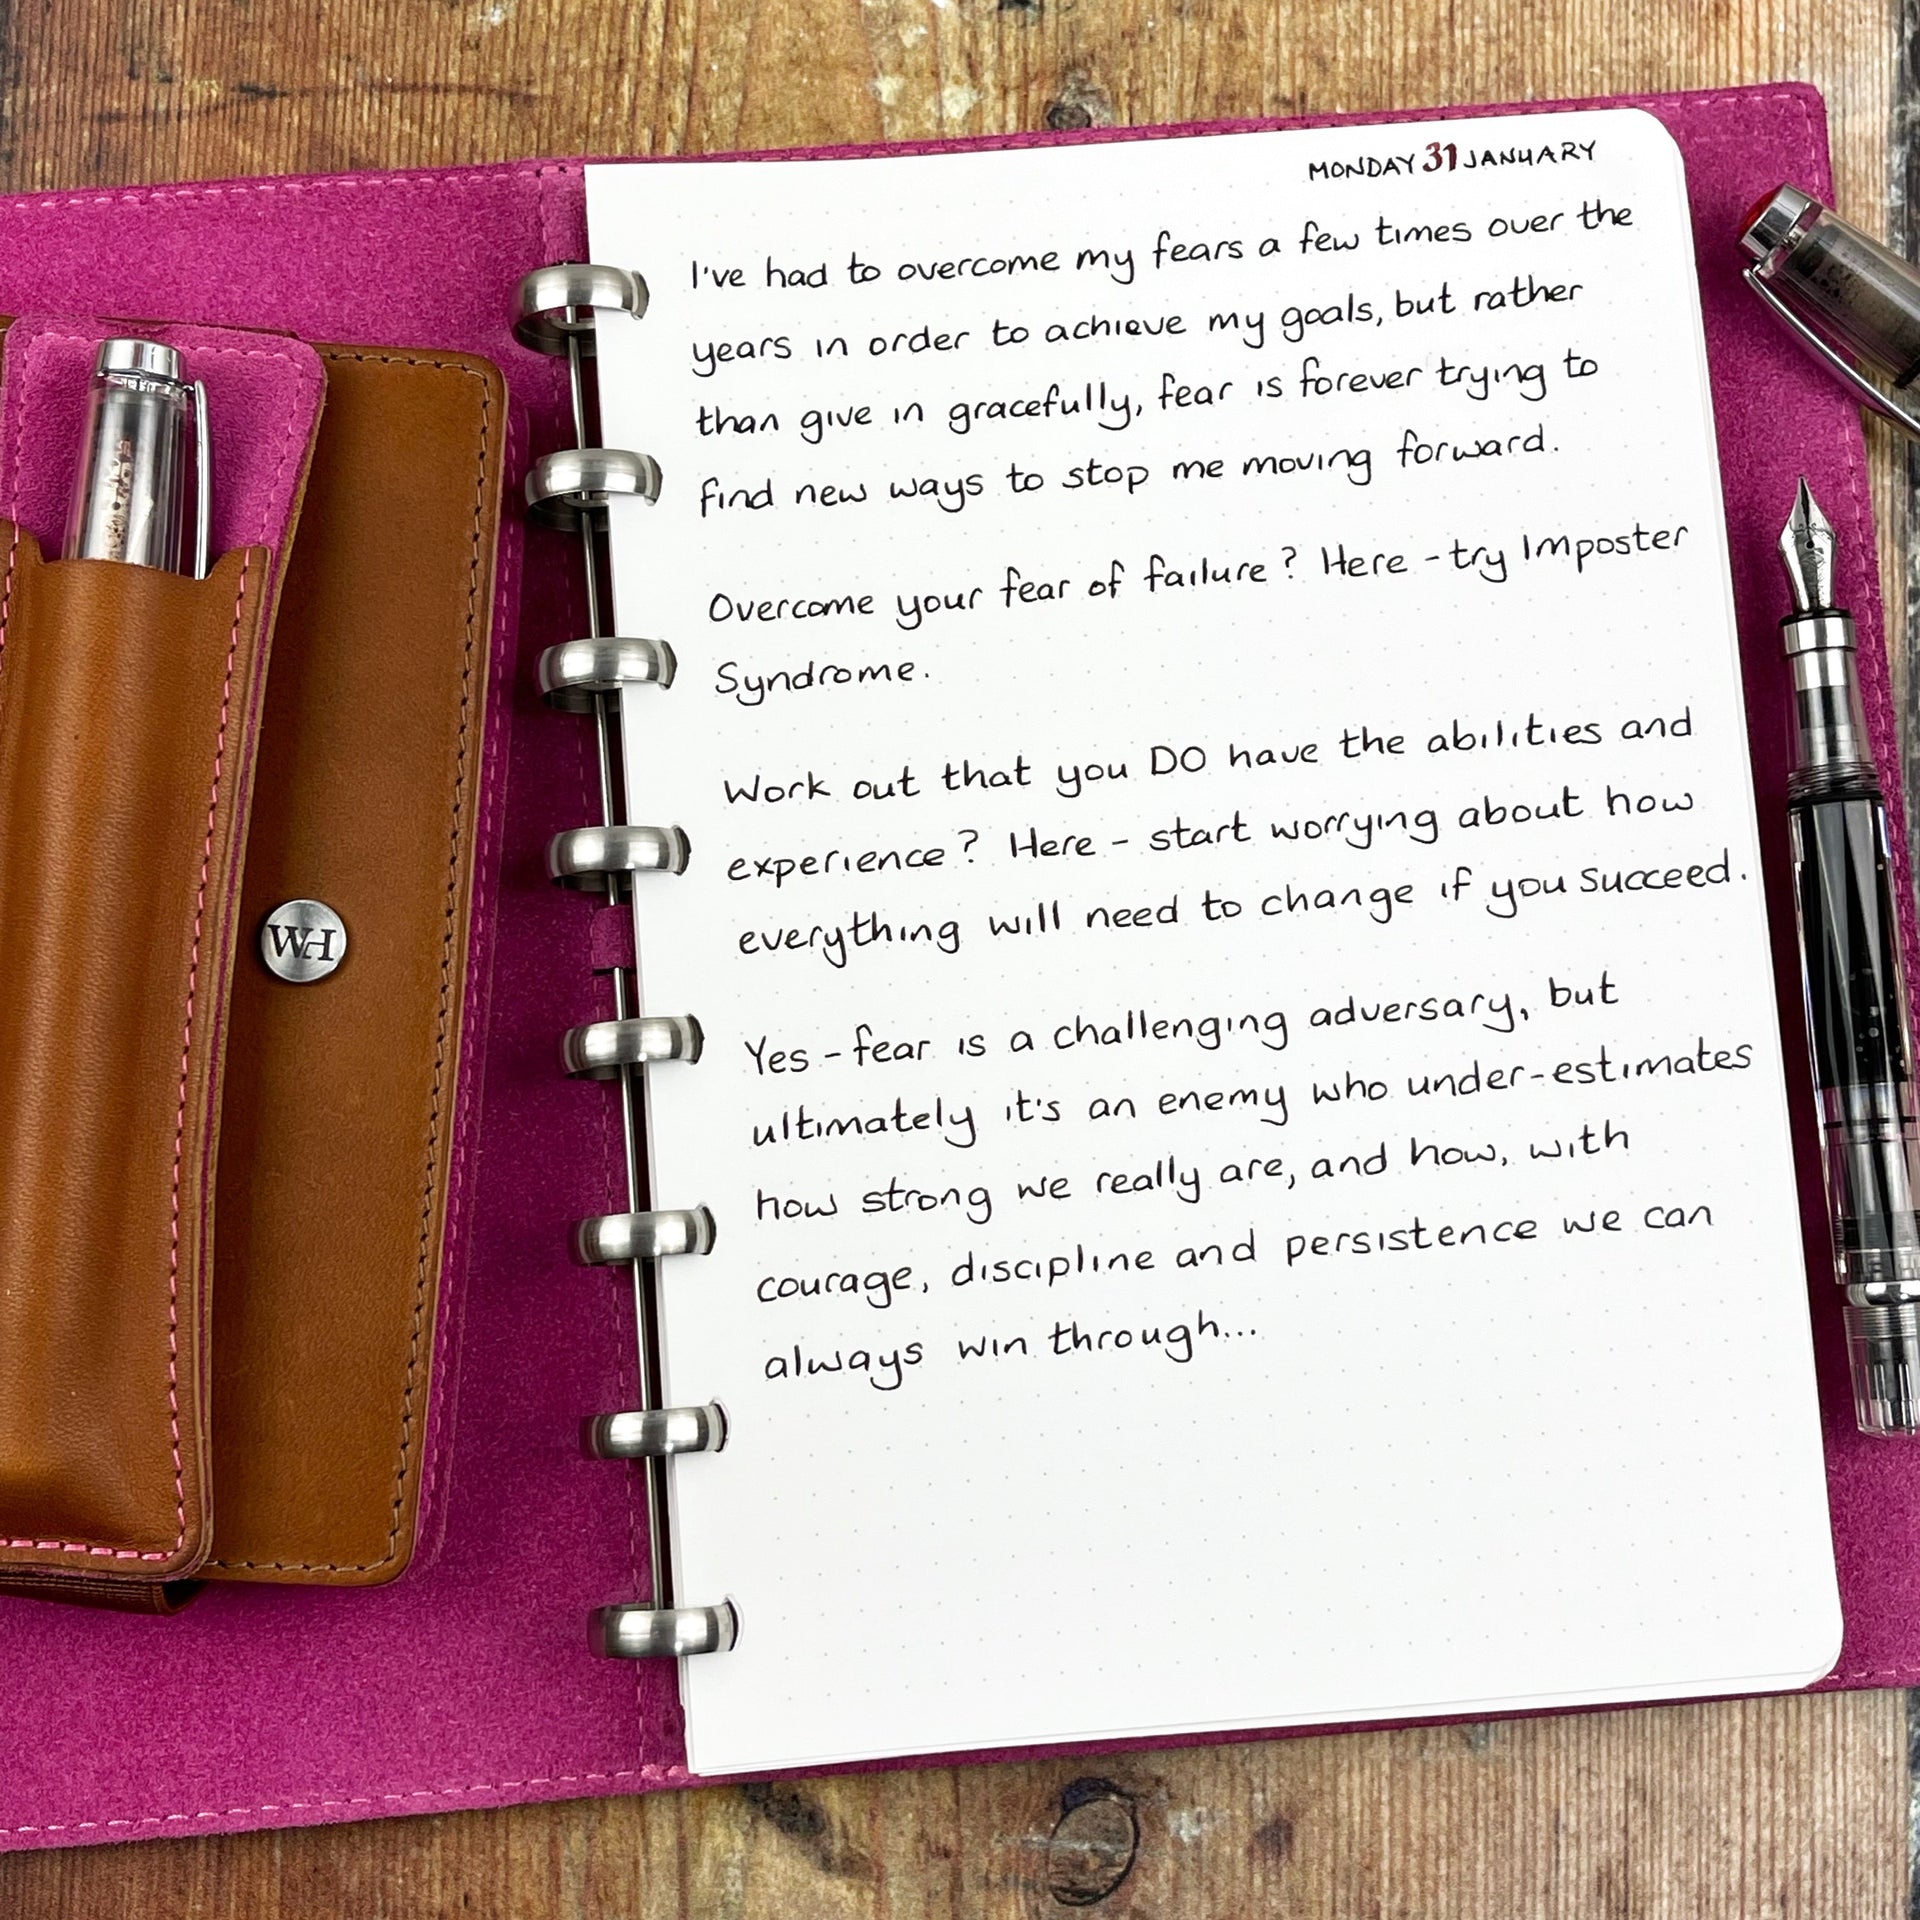 MONDAY 31 JANUARY
I've had to overcome my fears a few times over the
years in order to achieve my goals, but rather
than give in gracefully, fear is forever trying to
find new ways to stop me moving forward.
Overcome your fear of failure? Here - try Imposter
Syndrome.
Work out that you DO have the abilities and
experience? Here - start worrying about how
everything will need to change if you succeed.
Yes - fear is a challenging adversary, but
ultimately it's an enemy who under-estimates
how strong we really are, and how, with
courage, discipline and persistence we can
always win through...
WH